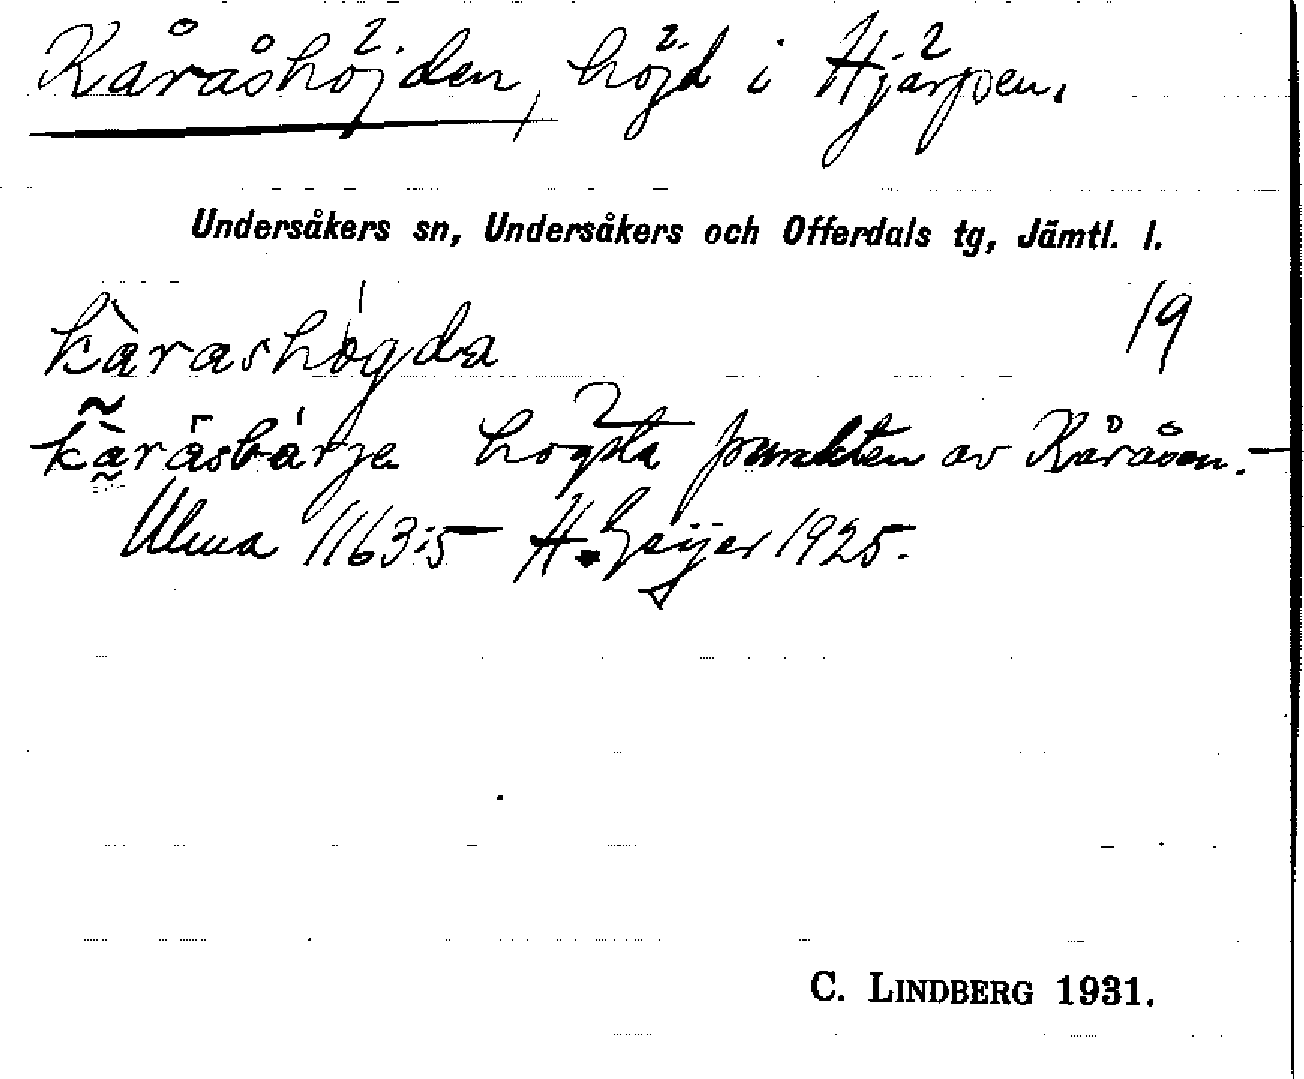 Kåråshöjden, höjd i Hjärpen.
Undersåkers sn, Undersåkers och Offerdals tg, Jämtl. l.
kàrashógda 19
kàräsbärje högsta punkten av Kåråsen.-
Ulma 1163:5 H. Geijer 1925.
C. LINDBERG 1931.